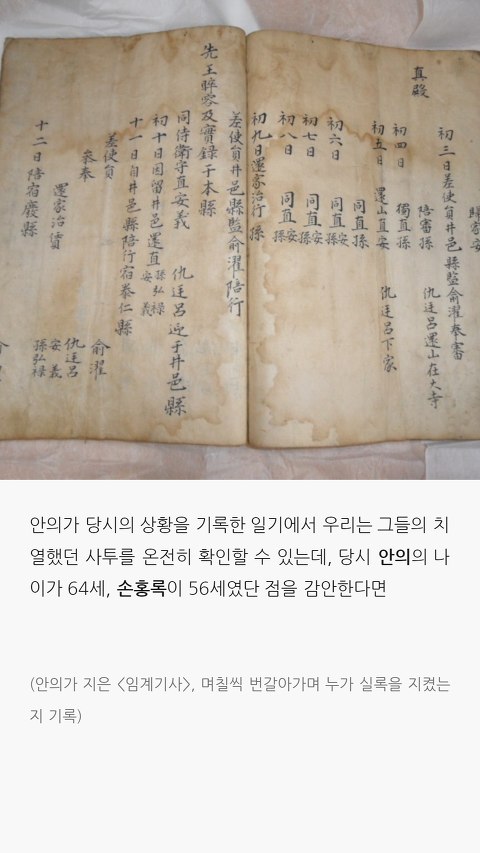 真殿
初三日差使員井邑縣監俞濯奉審
陪審孫 仇廷呂還山在大寺
初四日 獨直孫
初五日 還山直安 仇廷呂下家
同直孫
初六日 同直安孫
初七日 同直安孫
初八日 同直安孫
初九日還家治行孫
差使員井邑縣監俞濯陪行
先王晬容及實錄于本縣
同侍衛守直安義 仇廷呂迎于井邑縣
初十日因留井邑還直孫弘祿安義
十一日自井邑縣陪行宿泰仁縣
差使員 俞濯
參奉 仇廷呂 安義 孫弘祿
還家治
十二日陪宿廢縣
안의가 당시의 상황을 기록한 일기에서 우리는 그들의 치
열했던 사투를 온전히 확인할 수 있는데, 당시 안의의 나
이가 64세, 손홍록이 56세였단 점을 감안한다면
(안의가 지은 <임계기사>, 며칠씩 번갈아가며 누가 실록을 지켰는
지 기록)